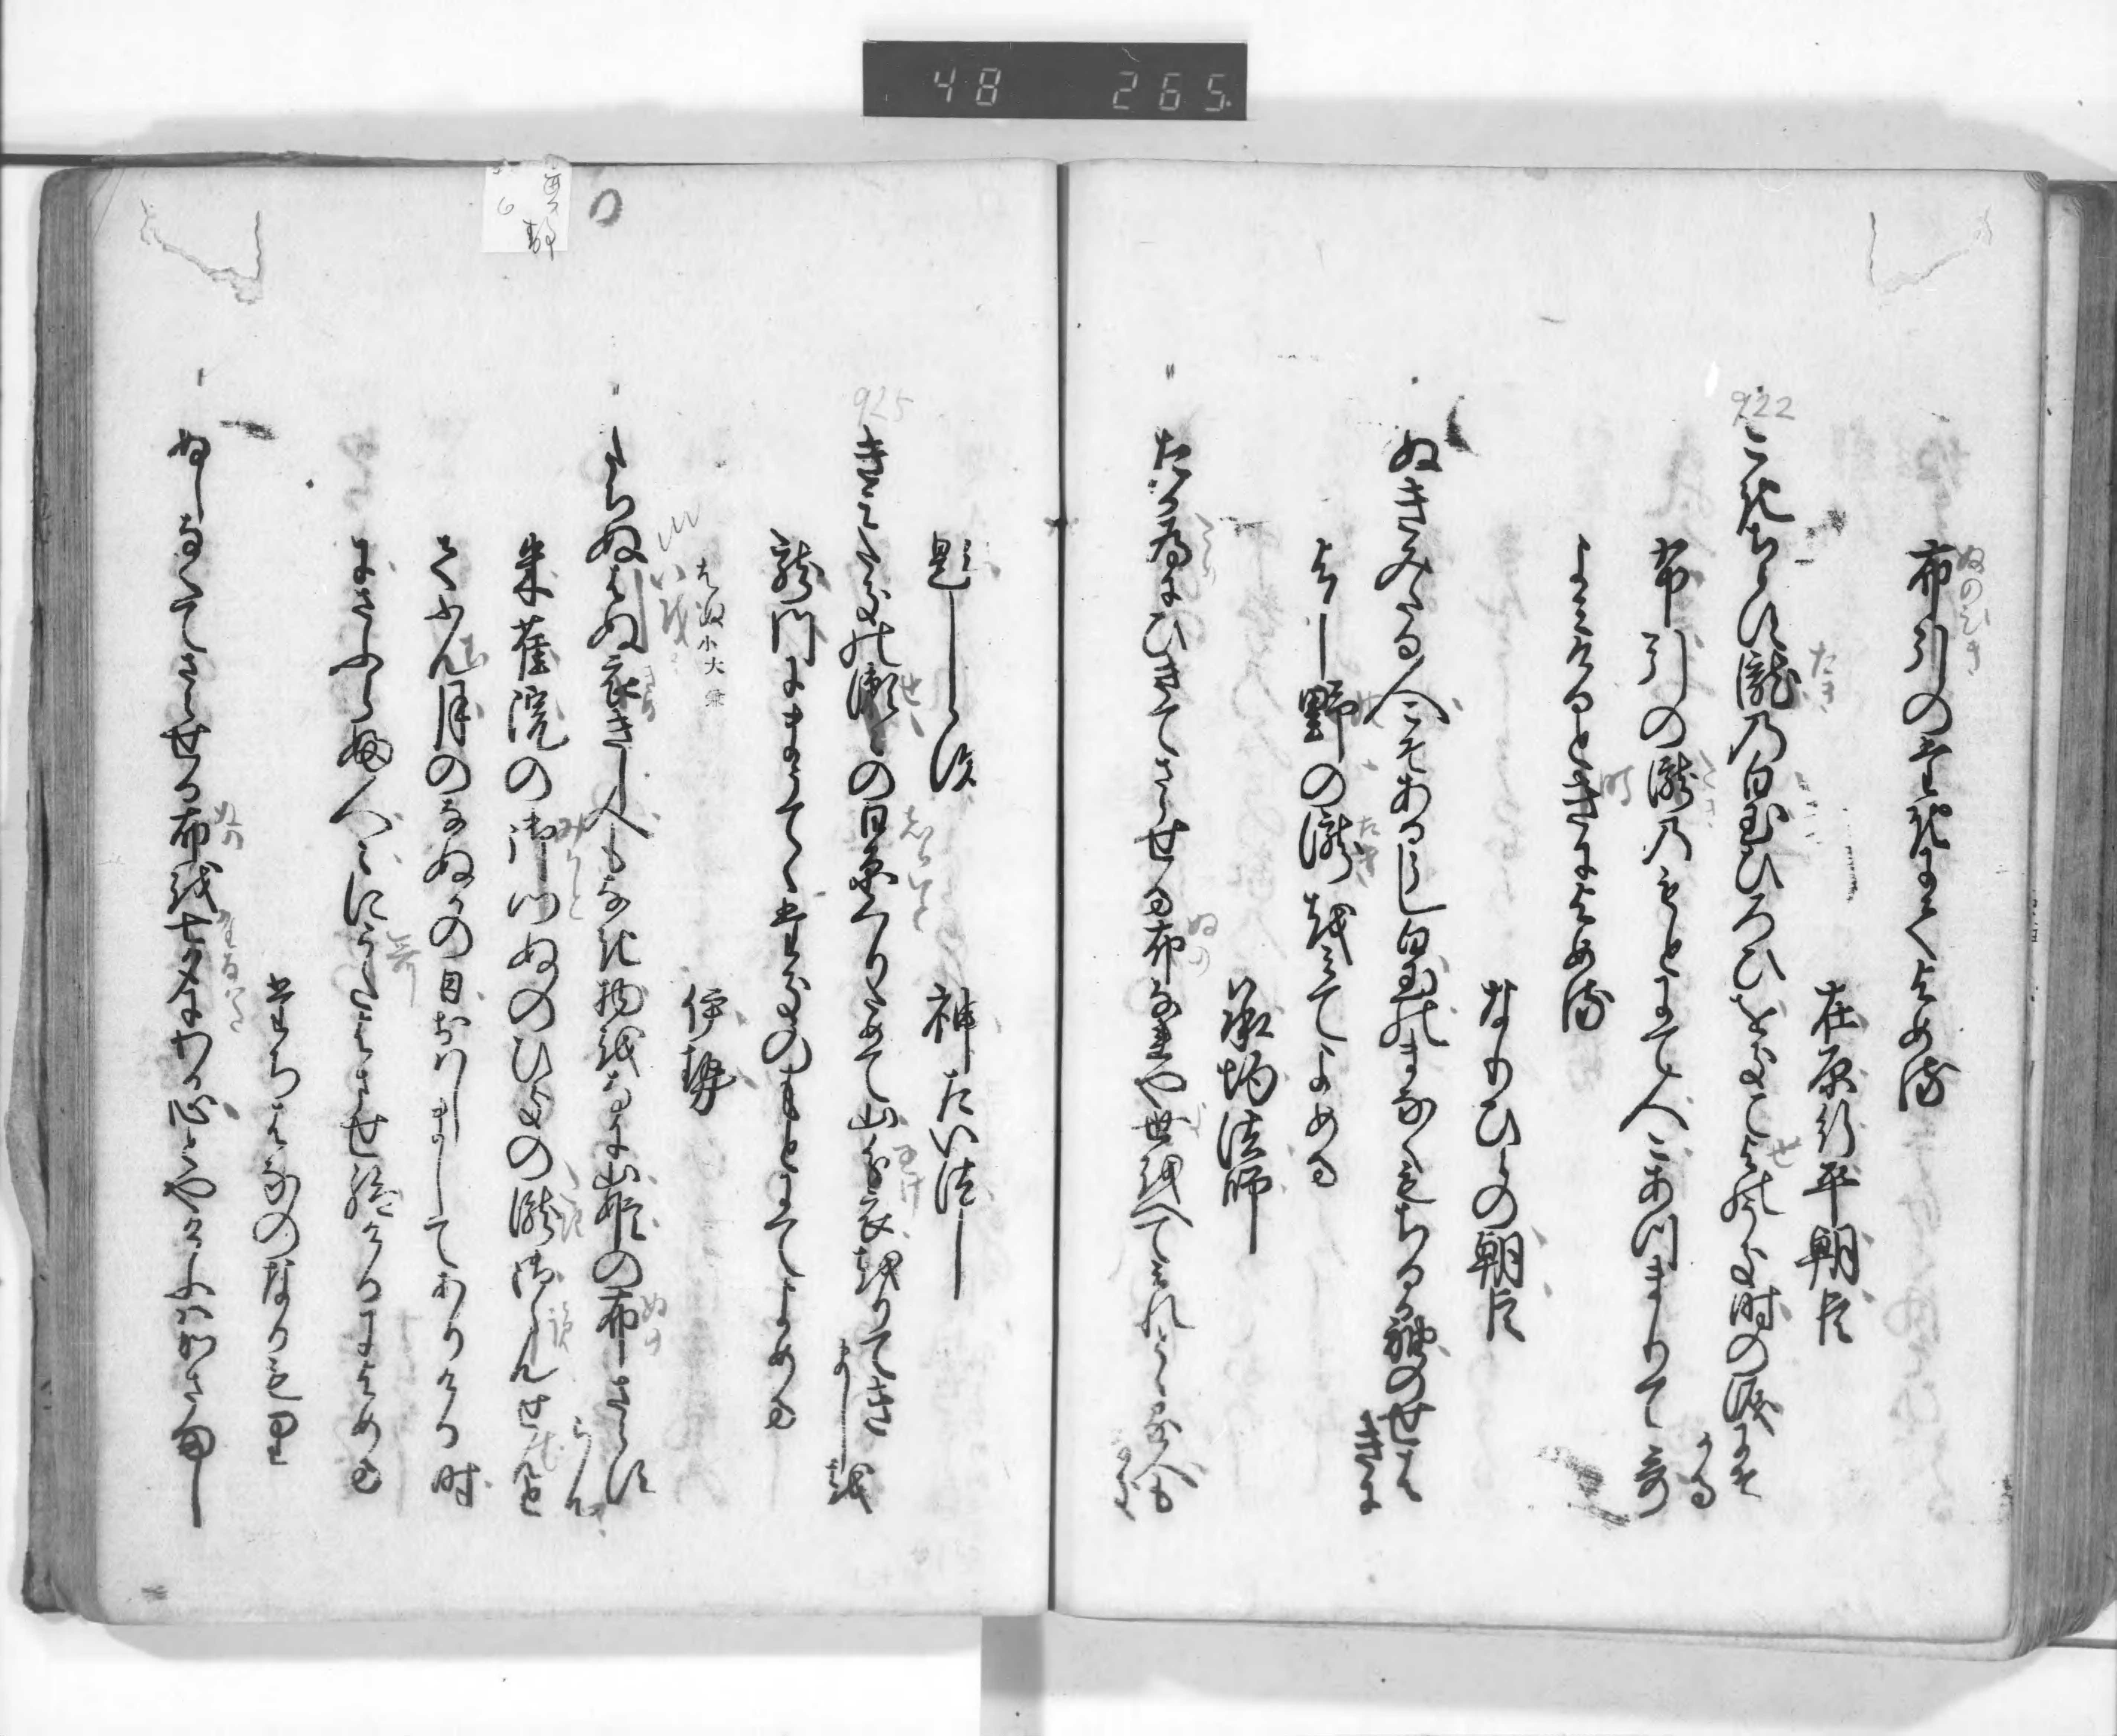 48 265
布引のたきにてよめる
在原行平朝臣
922
こきちらす瀧の白玉ひろひをきて世のうき時の涙にそ
かる
布引の瀧のもとにて人々あつまりて哥
よみけるときによめる
なりひらの朝臣
ぬきみたる人こそあるらし白玉のまなくもちるか袖のせ
はきに
よしの野の瀧を見てよめる
承均法師
たかためにひきてさらせる布なれや世をへてみれととる人も
なき
題しらす
神たい法し
925
きよたきの瀬々の白糸くりためて山わけ衣をりてき
ましを
龍門にまうてゝたきのもとにてよめる
伊勢
たちぬはぬ衣きし人もなき物をなに山姫の布さらす
らん
朱雀院の御門ぬのひきの瀧御らんせんと
て文月のなぬかの日おはしましてありける時
にさふらふ人々に哥よませ給けるによめる
たちはなのなかもり
ぬしなくてさらせる布を七夕にわか心とやけふはかさまし